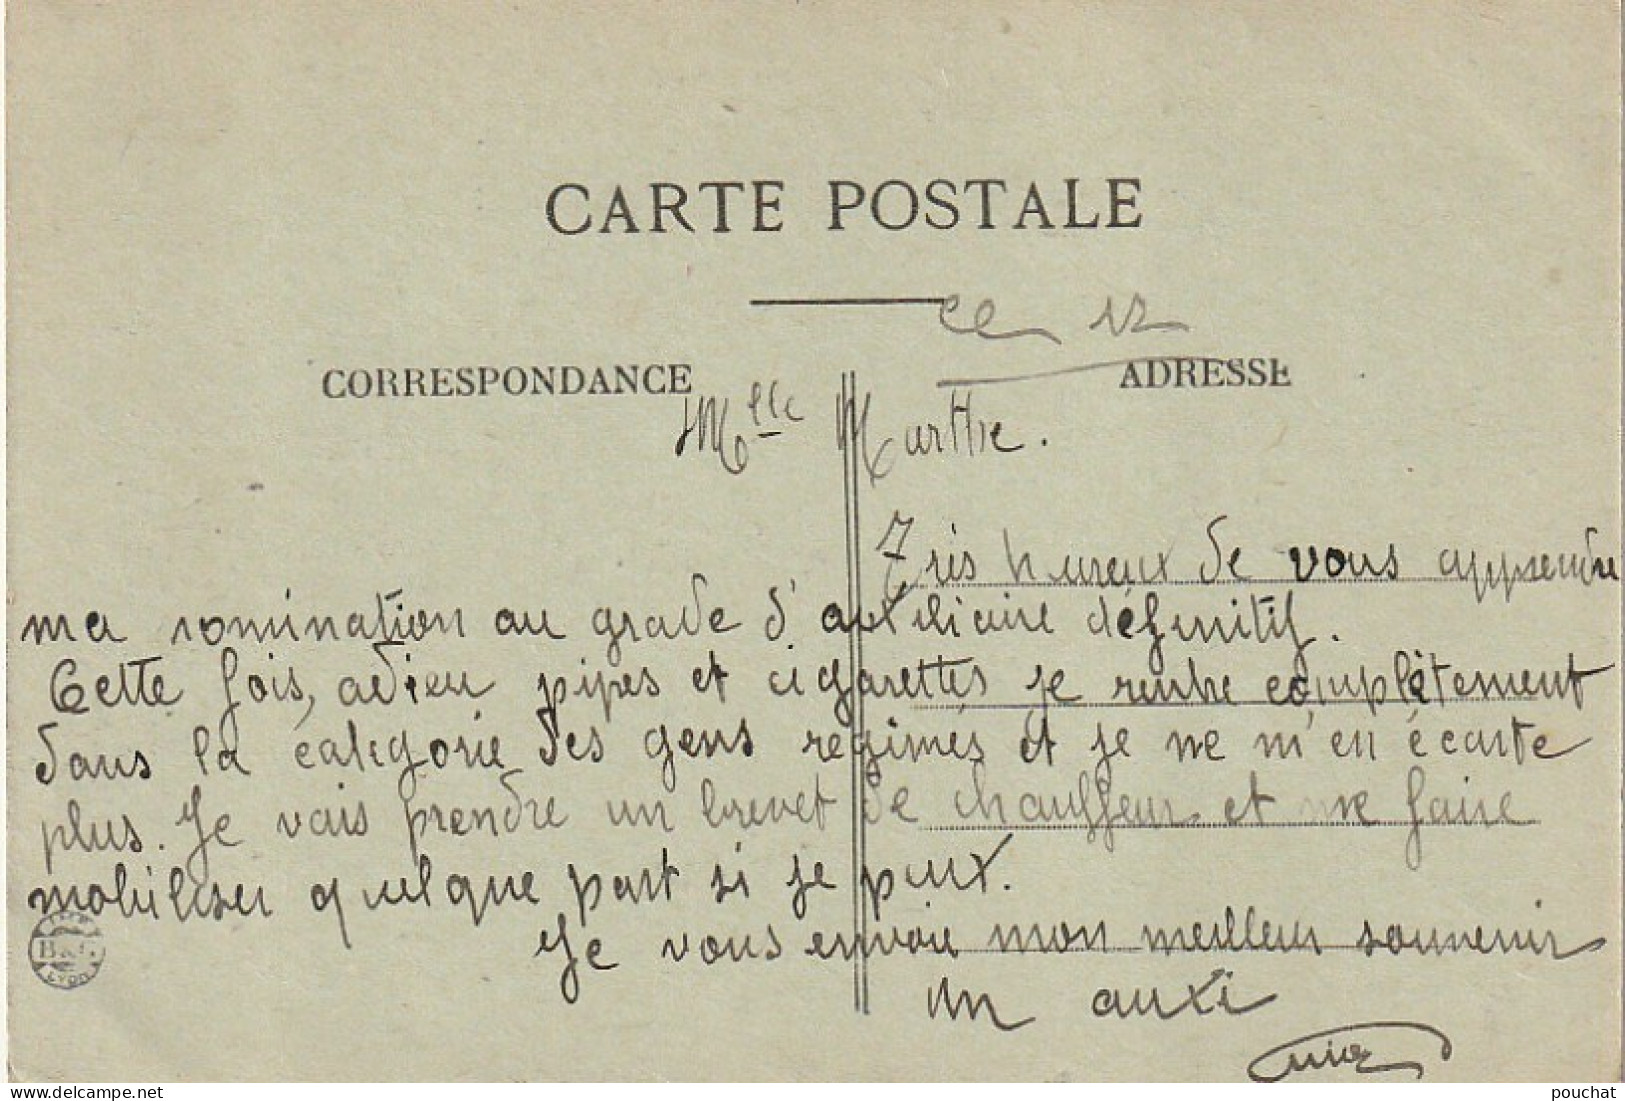 CARTE POSTALE
ce 12
CORRESPONDANCE ADRESSE
Mlle Marthe.
Très hureux de vous apprendre
ma nomination au grade d'auxiliaire définitif.
Cette fois, adieu pipes et cigarettes je rentre complètement
dans la catégorie des gens régimés et je ne m'en écarte
plus. Je vais prendre un brevet de chauffeur et me faire
mobiliser quelque part si je peux.
Je vous envoie mon meilleur souvenir
un auxi
B & G
LYON
pouchat